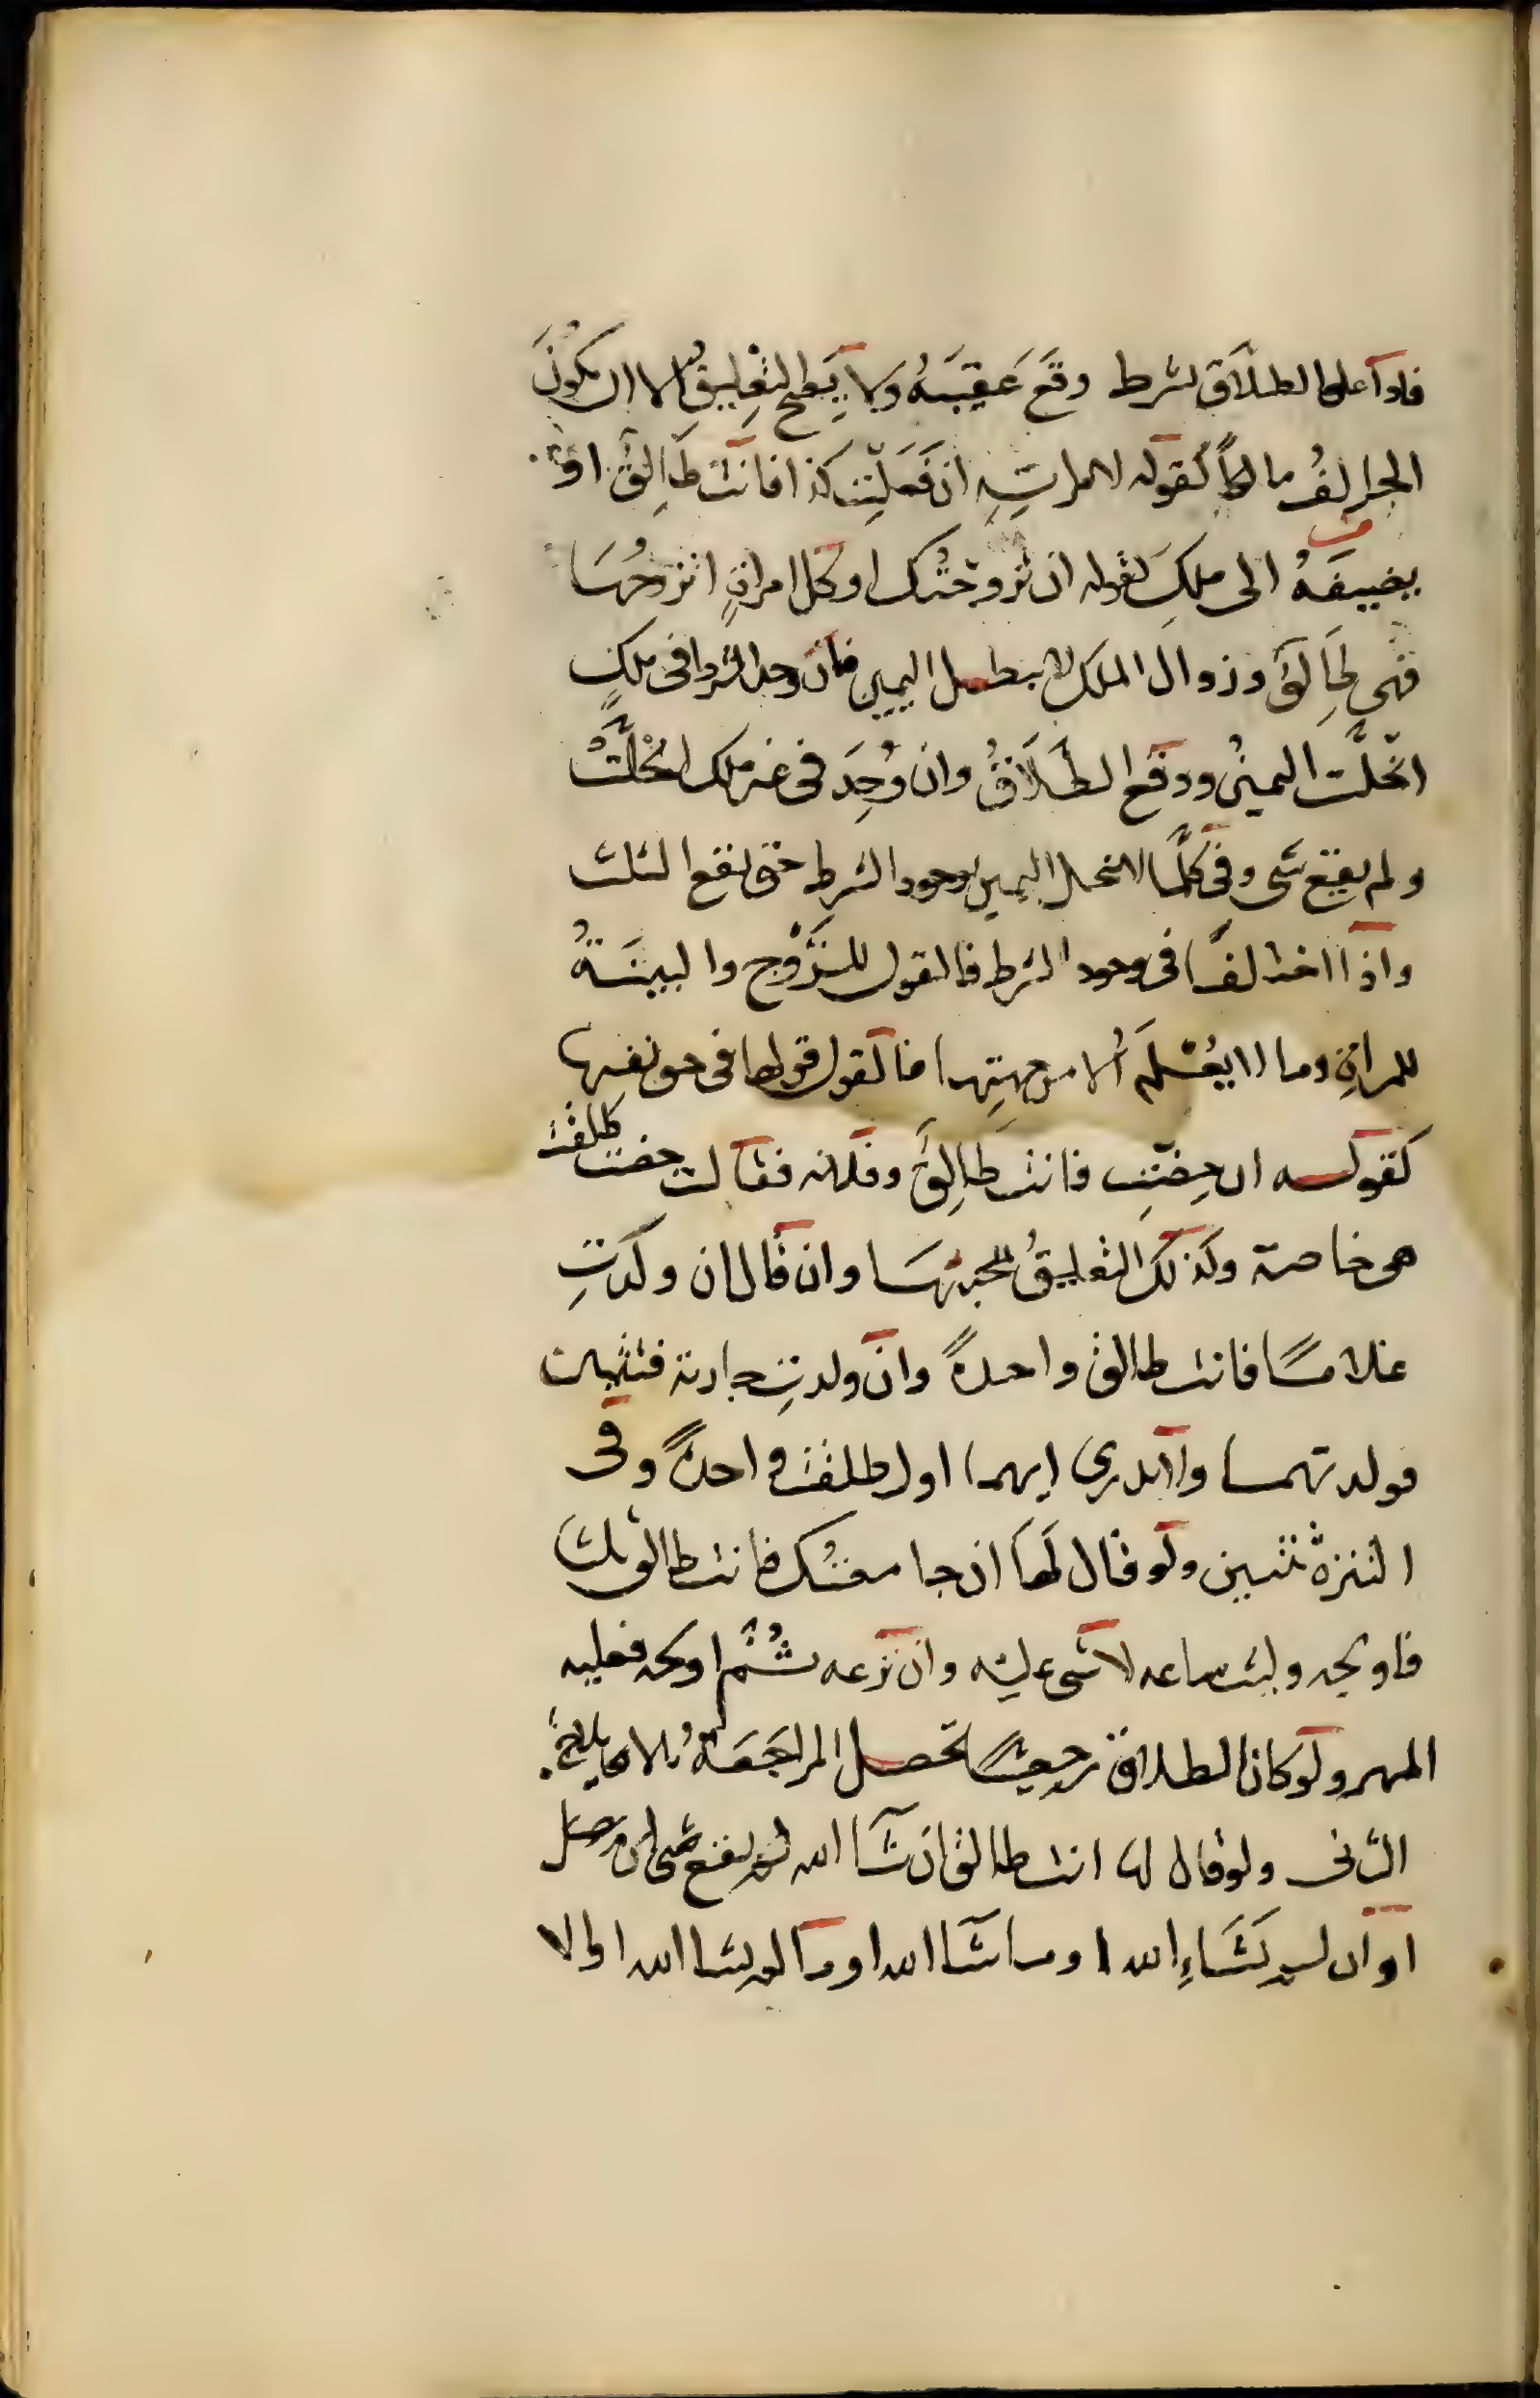 فاذا علق الطلاق بشرط وقع عقيبه ولا يصح التعليق الا ان يكون
الحالف مالكا كقوله لامراته ان فعلت كذا فانت طالق او
يضيفه الى ملك كقوله ان تزوجتك او كل امراة اتزوجها
فهى طالق وزوال الملك لا يبطل اليمين فان وجد الشرط فى ملك
انحلت اليمين ووقع الطلاق وان وجد فى غير ملك انحلت
ولم يقع شى وفى كلما لا تنحل اليمين بوجود الشرط حتى يقع الثلث
واذا اختلفا فى وجود الشرط فالقول للزوج والبينة
للمراة وما لا يعلم الا من جهتها فالقول قولها فى حق نفسها
كقوله ان حضت فانت طالق وفلانه فقالت حضت طلقت
هى خاصة وكذلك التعليق بمحبتها وان قال ان ولدت
غلاما فانت طالق واحدة وان ولدت جارية فثنتين
فولدتهما ولا يدرى ايهما اول طلقت واحدة وفى
التنزه ثنتين ولو قال لها ان جامعتك فانت طالق ثلثا
فاولجه ولبث ساعه لا شى عليه وان نزعه ثم اولجه فعليه
المهر ولو كان الطلاق رجعيا تحصل المراجعة بالايلاج
الثانى ولو قال لها انت طالق ان شا الله لم يقع شى ان وصل
او ان لم يشاء الله او ما شا الله او ما لم يشا الله او الا